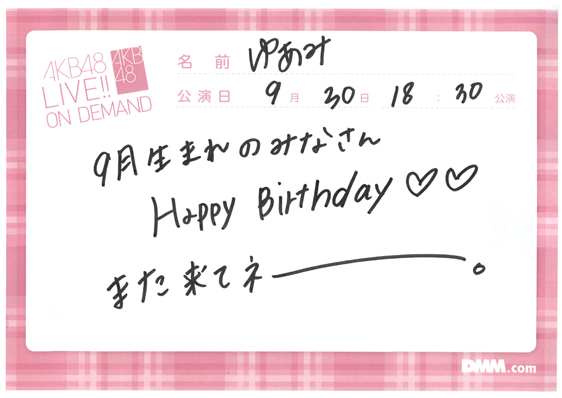 AKB48
LIVE!!
ON DEMAND
AKB
48
名前 ゆあみ
公演日 9月 30日 18:30公演
9月生まれのみなさん
Happy Birthday ♡♡
また来てネー。
DMM.com